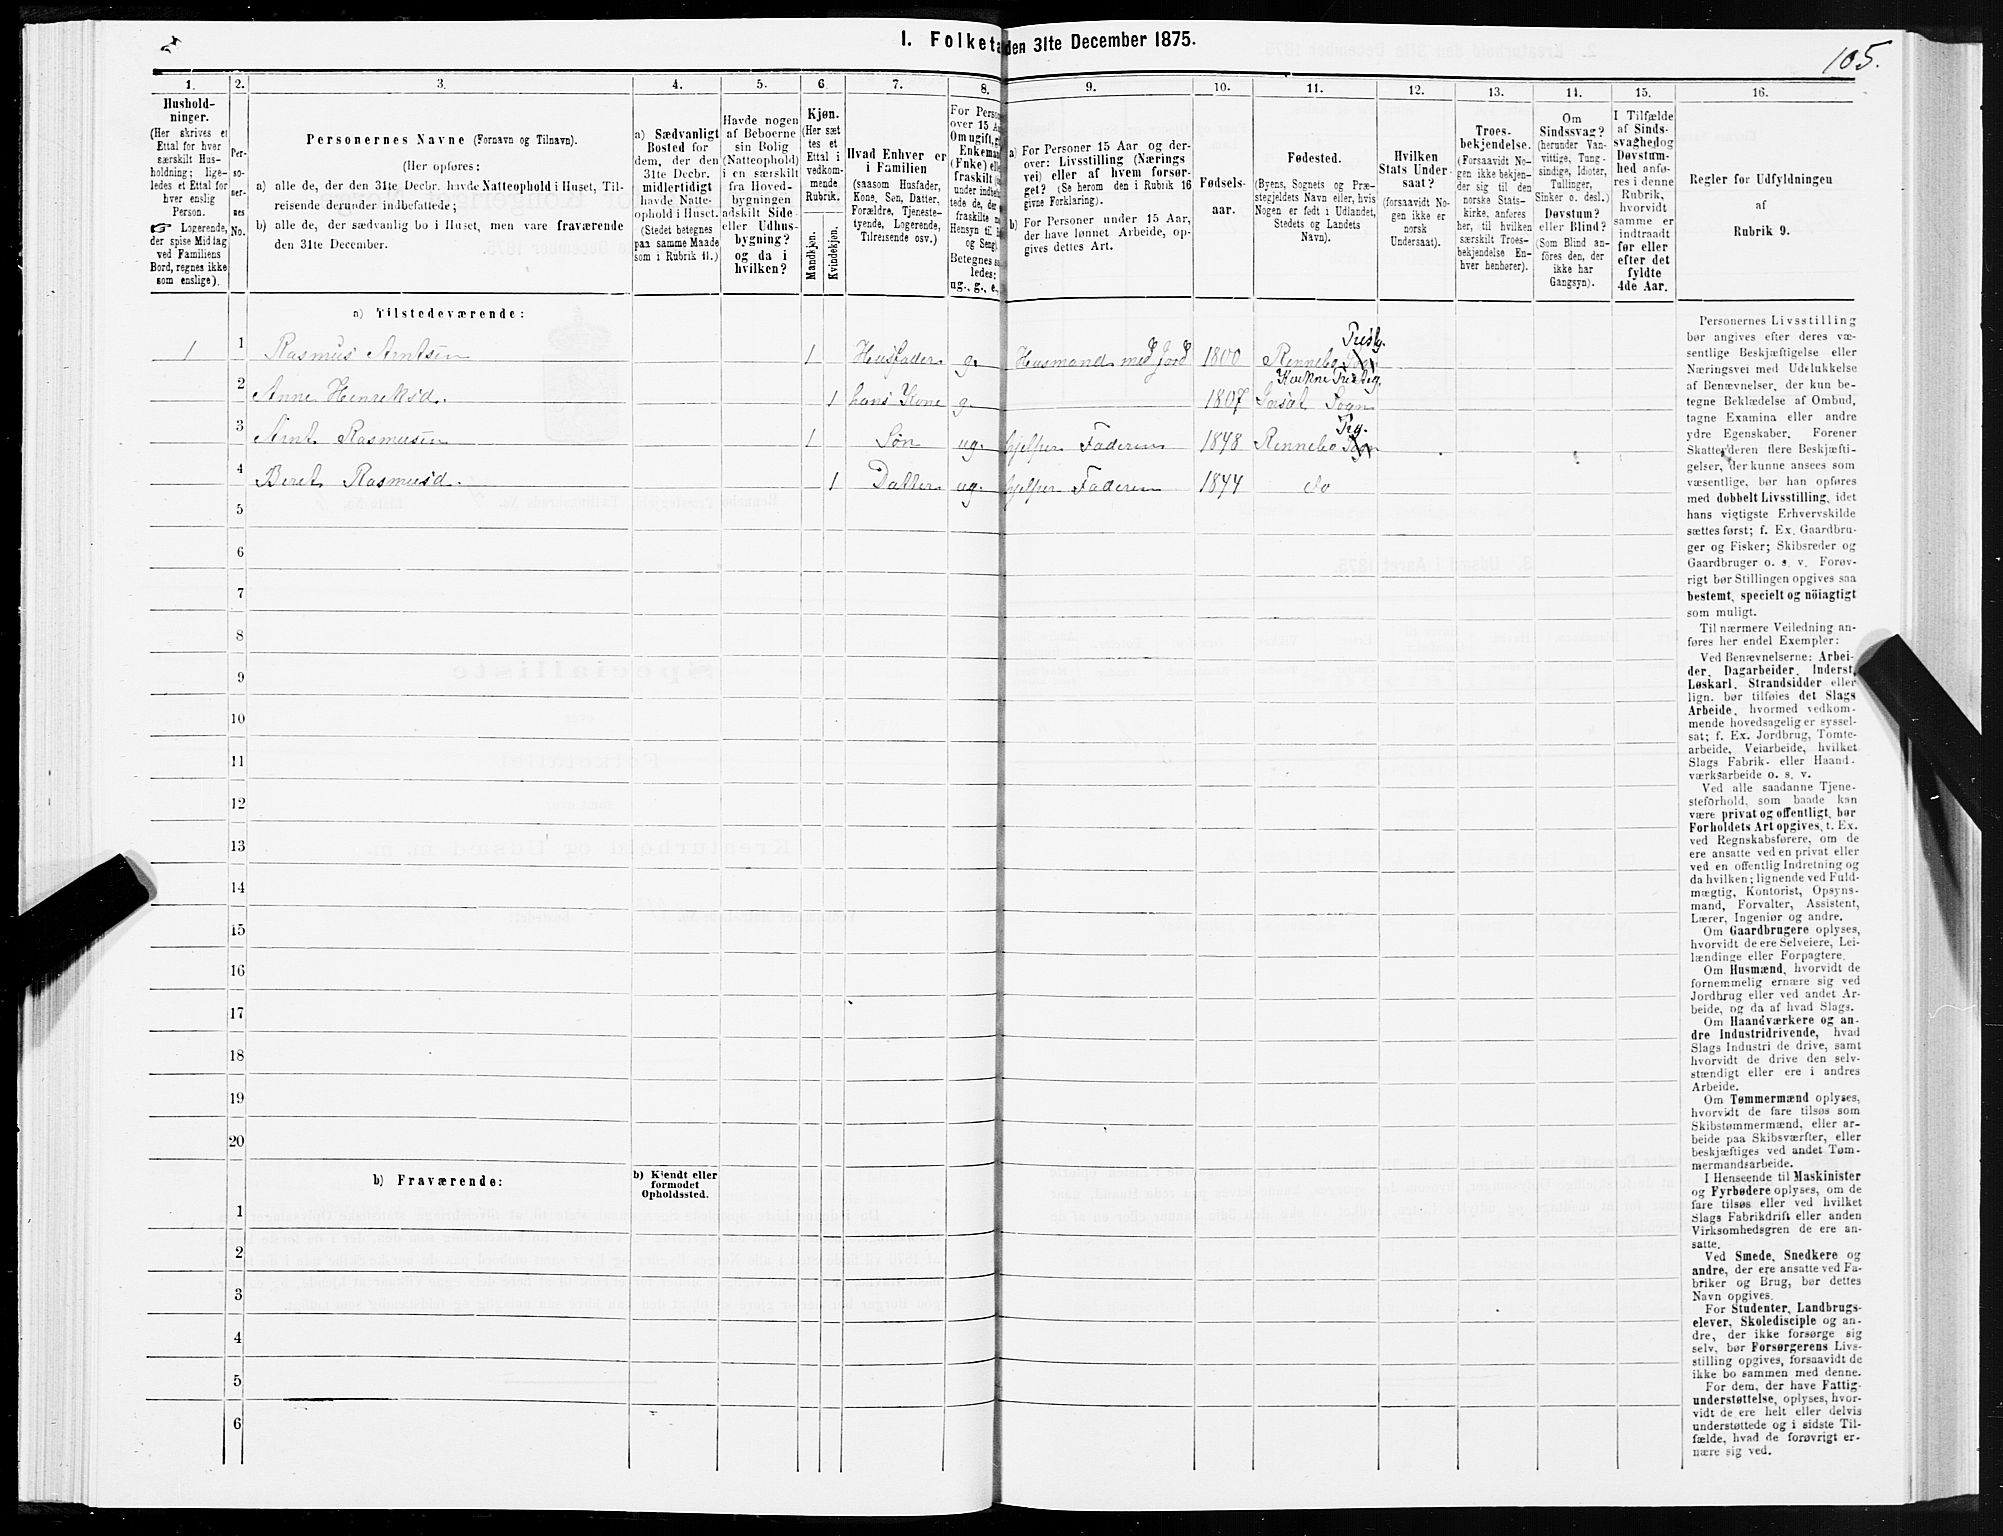 I. Folketa den 31te December 1875.
105.
1.
2.
3.
4.
5.
6.
7.
8.
9.
10.
11.
12.
13.
14.
15.
16.
Hushold-
ninger.
(Her skrives et
Ettal for hver
særskilt Hus-
holdning; lige-
ledes et Ettal for
hver enslig
Person.
☞ Logerende,
der spise Middag
ved Familiens
Bord, regnes ikke
som enslige).
Per-
so-
ner-
nes
No.
Personernes Navne (Fornavn og Tilnavn).
(Her opføres:
a) alle de, der den 31te Decbr. havde Natteophold i Huset, Til-
reisende derunder indbefattede;
b) alle de, der sædvanlig bo i Huset, men vare fraværende
den 31te December.
a) Sædvanligt
Bosted for
dem, der den
31te Decbr.
midlertidigt
havde Natte-
ophold i Huset.
(Stedet betegnes
paa samme Maade
som i Rubrik 11.)
Havde nogen
af Beboerne
sin Bolig
(Natteophold)
i en særskilt
fra Hoved-
bygningen
adskilt Side-
eller Udhus-
bygning?
og da i
hvilken?
Kjøn.
(Her sæt
tes et
Ettal i
vedkom-
mende
Rubrik.
Mandkjøn.
Kvindekjøn.
Hvad Enhver er
i Familien
(saasom Husfader,
Kone, Søn, Datter,
Forældre, Tjeneste-
tyende, Logerende,
Tilreisende osv.)
For Perso
over 15 Aa
Om ugift, gi
Enkema
(Fnke) elle
fraskilt
Betegnes sa
ledes:
ug., g., e.,
a) For Personer 15 Aar og der-
over: Livsstilling (Nærings
vei) eller af hvem forsør-
get? (Se herom den i Rubrik 16
givne Forklaring).
b) For Personer under 15 Aar,
der have lønnet Arbeide, op-
gives dettes Art.
Fødsels-
aar.
Fødested.
(Byens, Sognets og Præ-
stegjeldets Navn eller, hvis
Nogen er født i Udlandet,
Stedets og Landets
Navn).
Hvilken
Stats Under-
saat?
(forsaavidt No-
gen ikke er
norsk
Undersaat).
Troes-
bekjendelse.
(Forsaavidt No-
gen ikke bekjen-
der sig til den
norske Stats-
kirke, anføres
her, til hvilken
særskilt Troes-
bekjendelse En-
hver henhører).
Om
Sindssvag?
(herunder Van-
vittige, Tung-
sindige, Idioter,
Tullinger,
Sinker o. desl.)
Døvstum?
eller Blind?
(Som Blind an-
føres den, der
ikke har
Gangsyn).
I Tilfælde
af Sinds-
svaghed og
Døvstum-
hed anfø-
res i denne
Rubrik,
hvorvidt
samme er
indtraadt
før eller
efter det
fyldte
4de Aar.
Regler for Udfyldningen
af
Rubrik 9.
a) Tilstedeværende:
1 1 Rasmus Arntsen 1 Husfader g. Husmand med Jord 1800 Rennebo Prestg.
2 Anne Henriksd. 1 hans Kone g. 1807 Insæt Sogn Kvikne Prestg.
3 Arnt Rasmusen 1 Søn ug. hjelper Faderen 1848 Rennebo Pg.
4 Beret Rasmusd. 1 Datter ug. hjelper Faderen 1844 do
5
6
7
8
9
10
11
12
13
14
15
16
17
18
19
20
b) Fraværende:
b) Kjendt eller
formodet
Opholdssted.
1
2
3
4
5
6
Personernes Livsstilling
bør angives efter deres væ-
sentlige Beskjæftigelse eller
Næringsvei med Udelukkelse
af Benævnelser, der kun be-
tegne Beklædelse af Ombud,
tagne Examina eller andre
ydre Egenskaber. Forener
Skatteyderen flere Beskjæfti-
gelser, der kunne ansees som
væsentlige, bør han opføres
med dobbelt Livsstilling, idet
hans vigtigste Erhvervskilde
sættes først; f. Ex. Gaardbru-
ger og Fisker; Skibsreder og
Gaardbruger o. s. v. Forøv-
rigt bør Stillingen opgives saa
bestemt, specielt og nöiagtigt
som muligt.
Til nærmere Veiledning an-
føres her endel Exempler:
Ved Benævnelserne: Arbei-
der, Dagarbeider, Inderst,
Løskarl, Strandsidder eller
lign. bør tilføies det Slags
Arbeide, hvormed vedkom-
mende hovedsagelig er syssel-
sat; f. Ex. Jordbrug, Tomte-
arbeide, Veiarbeide, hvilket
Slags Fabrik- eller Haand-
værksarbeide o. s. v.
Ved alle saadanne Tjene-
steforhold, som baade kan
være privat og offentligt, bør
Forholdets Art opgives, t. Ex.
ved Regnskabsførere, om de
ere ansatte ved en privat eller
ved en offentlig Indretning og
da hvilken; lignende ved Fuld-
mægtig, Kontorist, Opsyns-
mand, Forvalter, Assistent,
Lærer, Ingeniør og andre.
Om Gaardbrugere oplyses,
hvorvidt de ere Selveiere, Lei-
lændinge eller Forpagtere.
Om Husmænd, hvorvidt de
fornemmelig ernære sig ved
Jordbrug eller ved andet Ar-
beide, og da af hvad Slags.
Om Haandværkere og an-
dre Industridrivende, hvad
Slags Industri de drive, samt
hvorvidt de drive den selv-
stændigt eller ere i andres
Arbeide.
Om Tømmermænd oplyses,
hvorvidt de fare tilsøs som
Skibstømmermænd, eller ar-
beide paa Skibsværfter, eller
beskjæftiges ved andet Tøm-
mermandsarbeide.
I Henseende til Maskinister
og Fyrbødere oplyses, om de
fare tilsøs eller ved hvilket
Slags Fabrikdrift eller anden
Virksomhedsgren de ere an-
satte.
Ved Smede, Snedkere og
andre, der ere ansatte ved Fa-
briker og Brug, bør dettes
Navn opgives.
For Studenter, Landbrugs-
elever, Skoledisciple og an-
dre, der ikke forsørge sig
selv, bør Forsørgerens Livs-
stilling opgives, forsaavidt de
ikke bo sammen med denne.
For dem, der have Fattig-
understøttelse, oplyses, hvor-
vidt de ere helt eller delvis
understøttede og i sidste Til-
fælde, hvad de forøvrigt er-
nære sig ved.